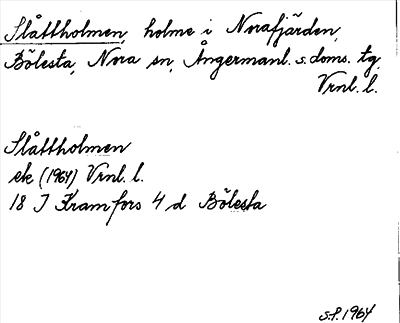 Slåttholmen, holme i Norafjärden,
Bölesta, Nora sn, Ångermanl. s. doms. tg,
Vrnl. l.
Slåttholmen
ek (1964) Vrnl. l.
18 I Kramfors 4 d Bölesta
S.P. 1964